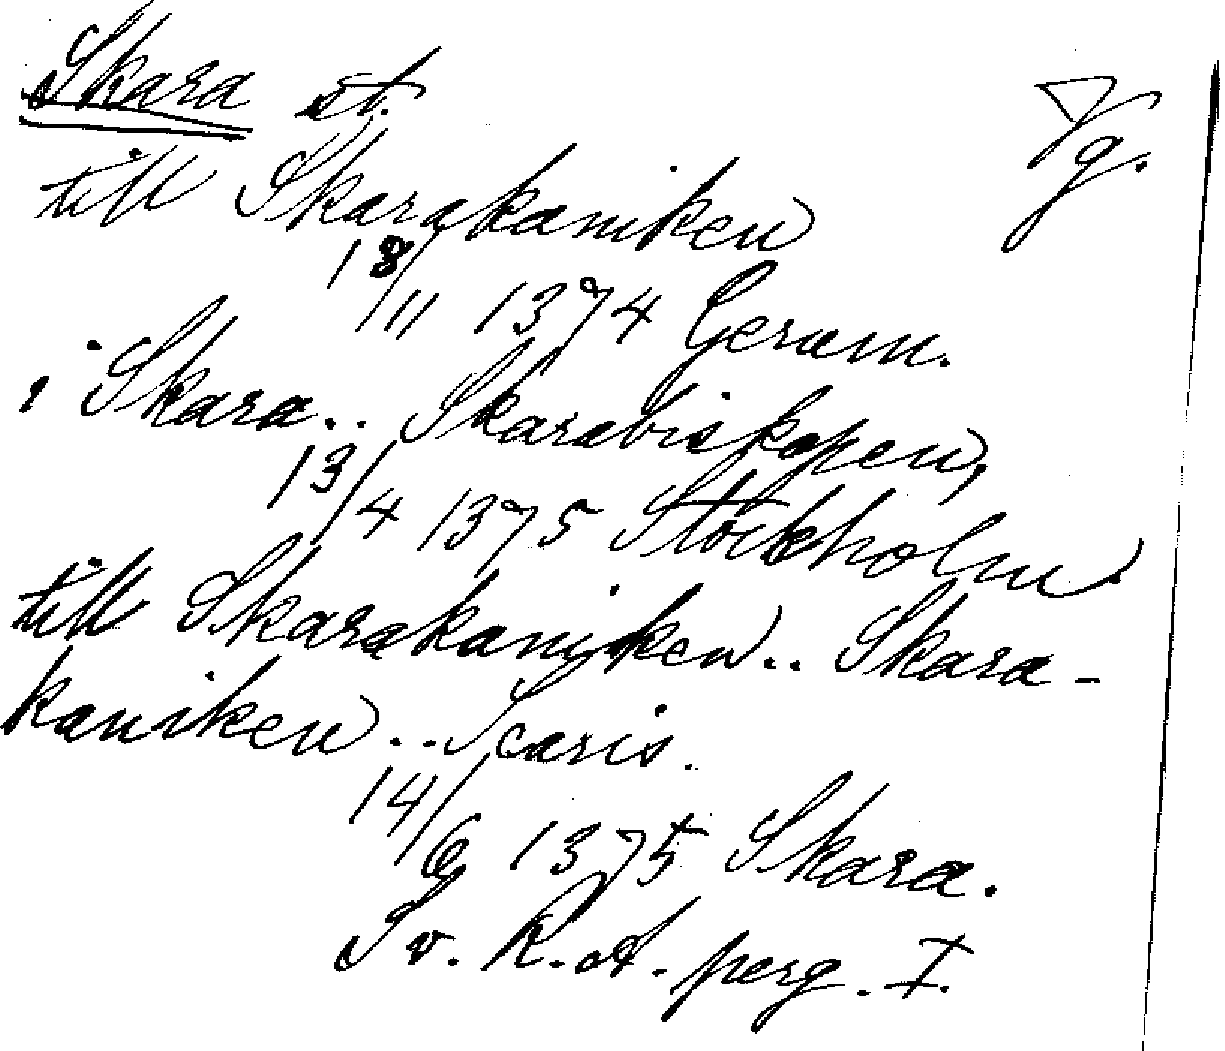 Skara st. Vg.
till Skarakaniken
18/11 1374 Geram.
i Skara.. Skarabiskopen,
13/4 1375 Stockholm.
till Skarakaniken.. Skara-
kaniken.. Scaris.
14/6 1375 Skara.
Sv. R.A. perg. I.